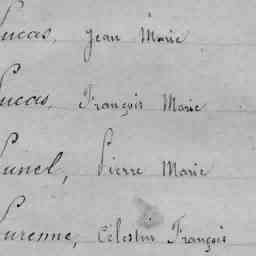 Lucas, Jean Marie
Lucas, François Marie
Lunel, Pierre Marie
Lurenne, Célestin François